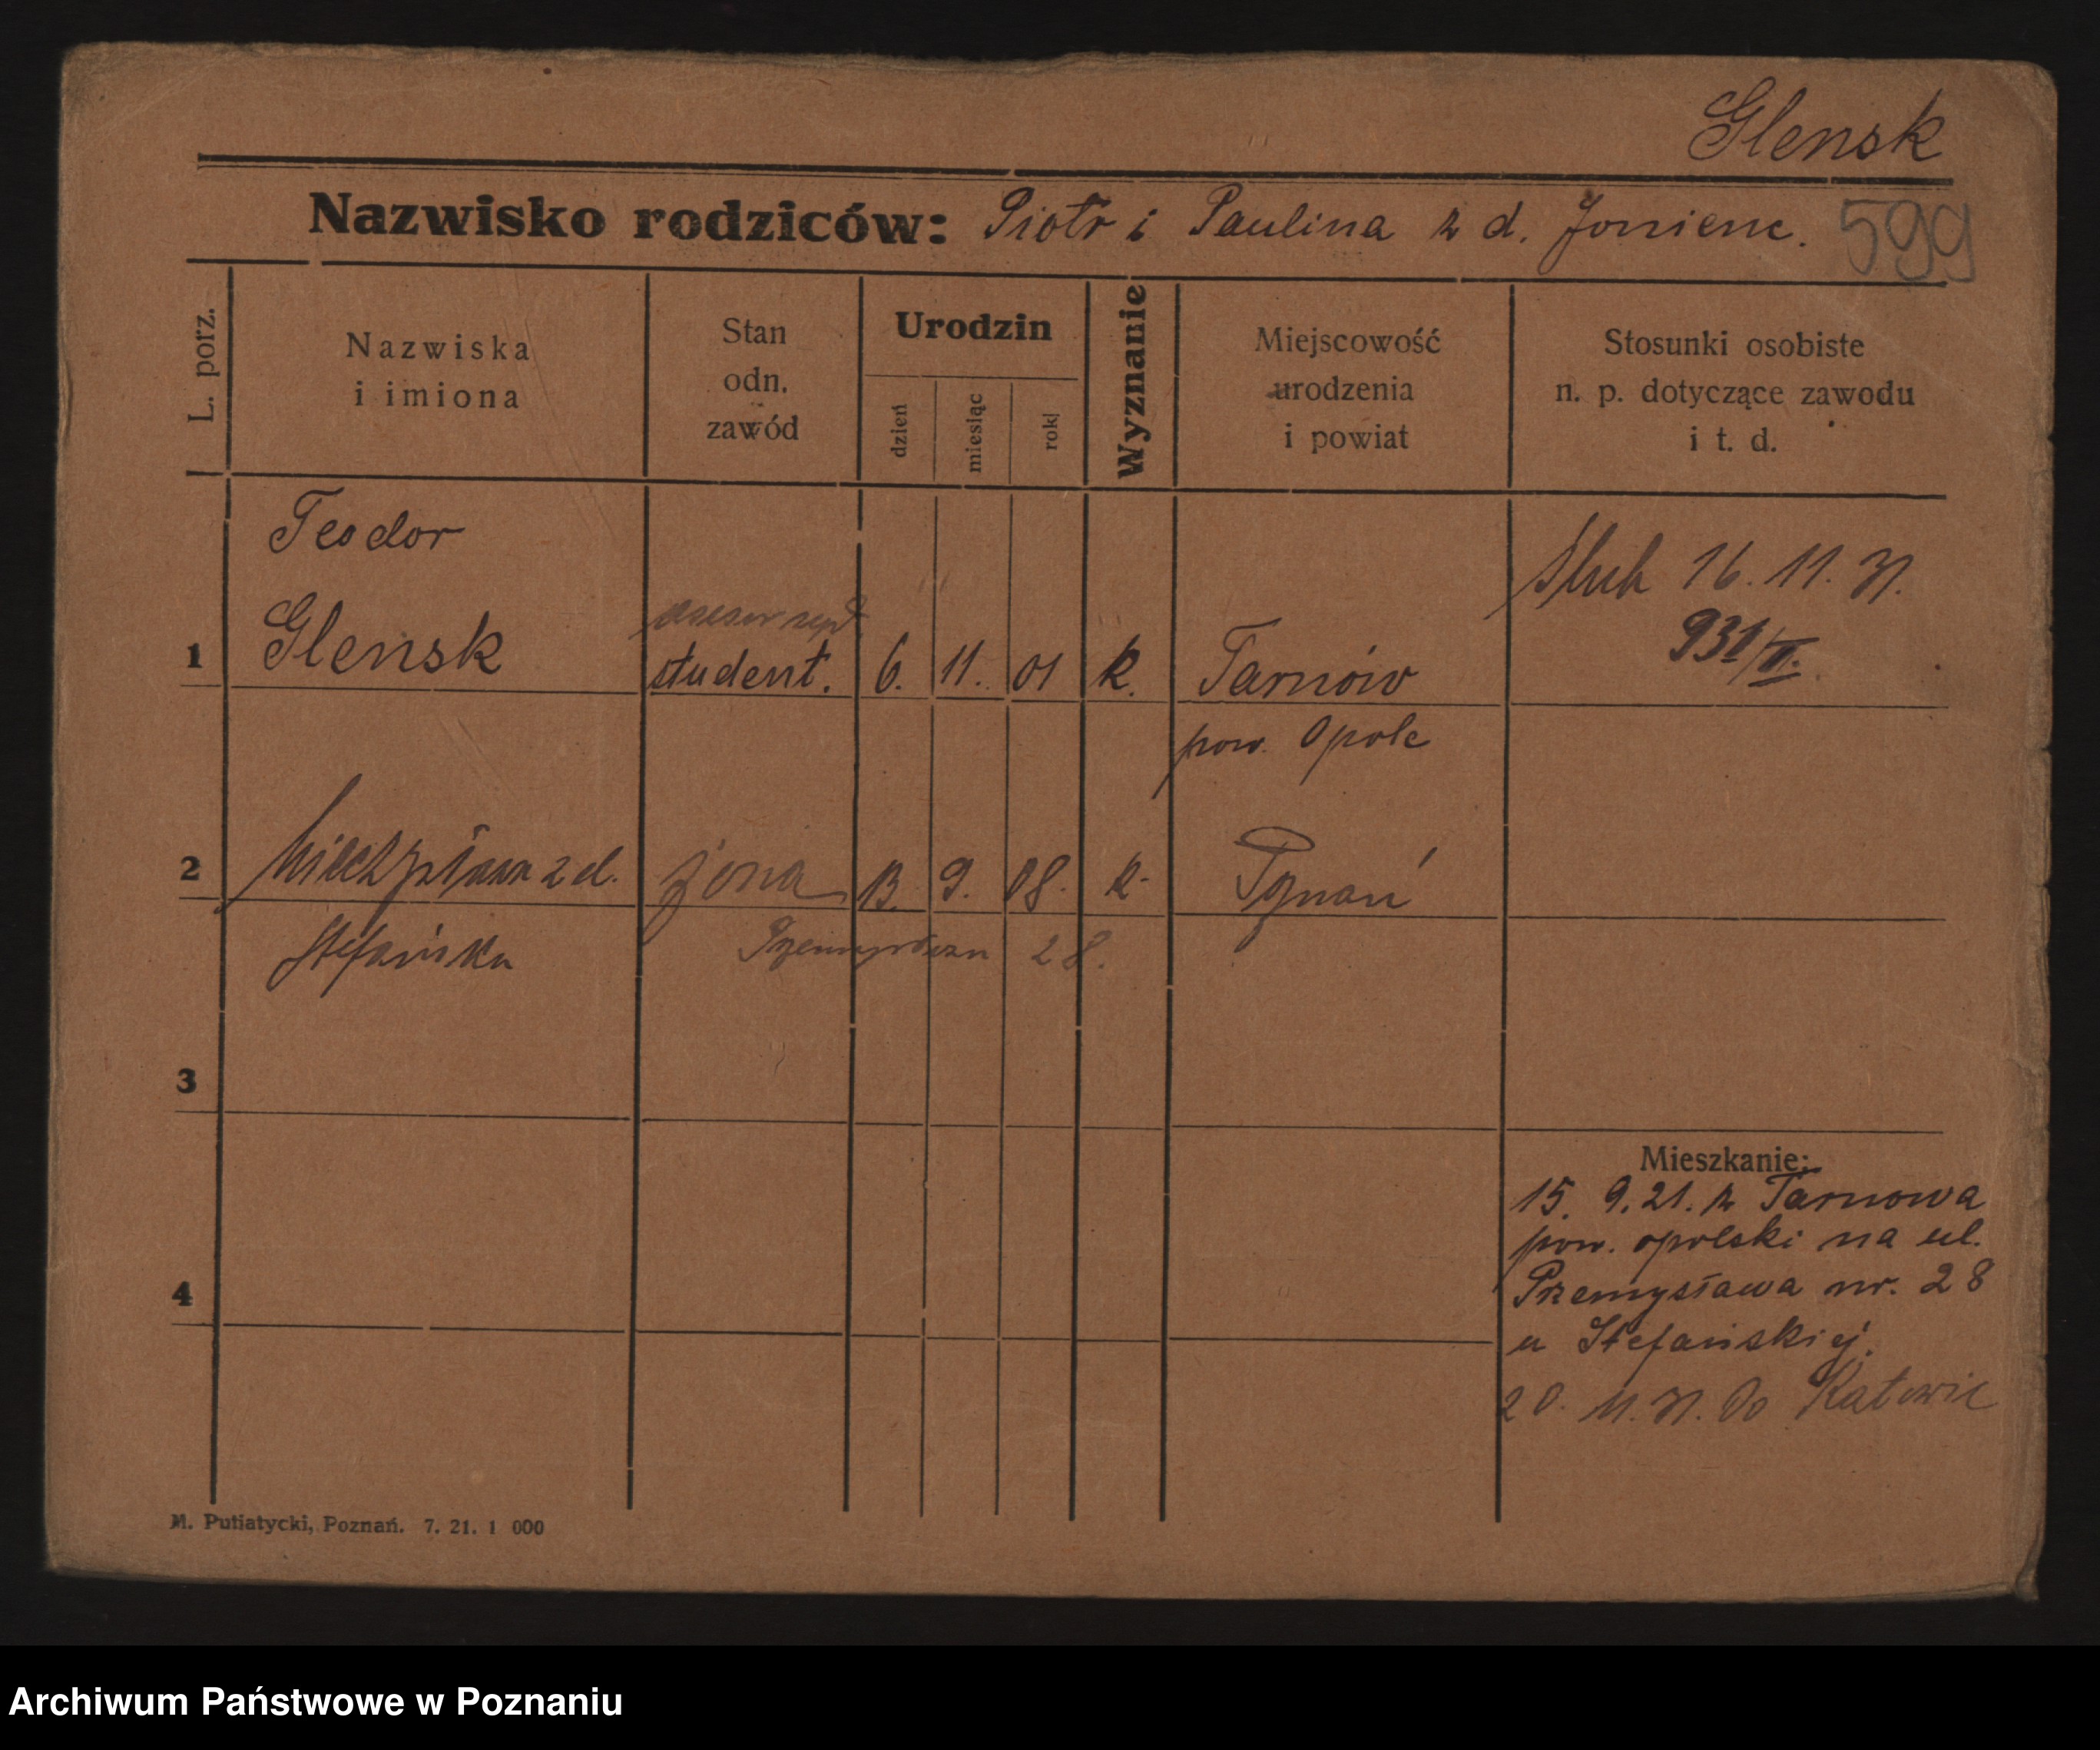 Glensk
Nazwisko rodziców: Piotr i Paulina z d. Jonienc. 599
L. porz.
Nazwiska
i imiona
Stan
odn.
zawód
Urodzin
dzień
miesiąc
rok
Wyznanie
Miejscowość
urodzenia
i powiat
Stosunki osobiste
n. p. dotyczące zawodu
i t. d.
Teodor
Ślub 16. 11. 31.
asesor sąd.
931/II.
1 Glensk student. 6. 11. 01 k. Tarnów
pow. Opole
2 z d. żona 13. 9. 08. k. Poznań
Stefańska 28.
3
4
Mieszkanie:
15. 9. 21. z Tarnowa
pow. opolski na ul.
Przemysława nr. 28
u Stefańskiej.
20. 11. 31. do Katowic
M. Putiatycki, Poznań. 7. 21. 1 000
Archiwum Państwowe w Poznaniu